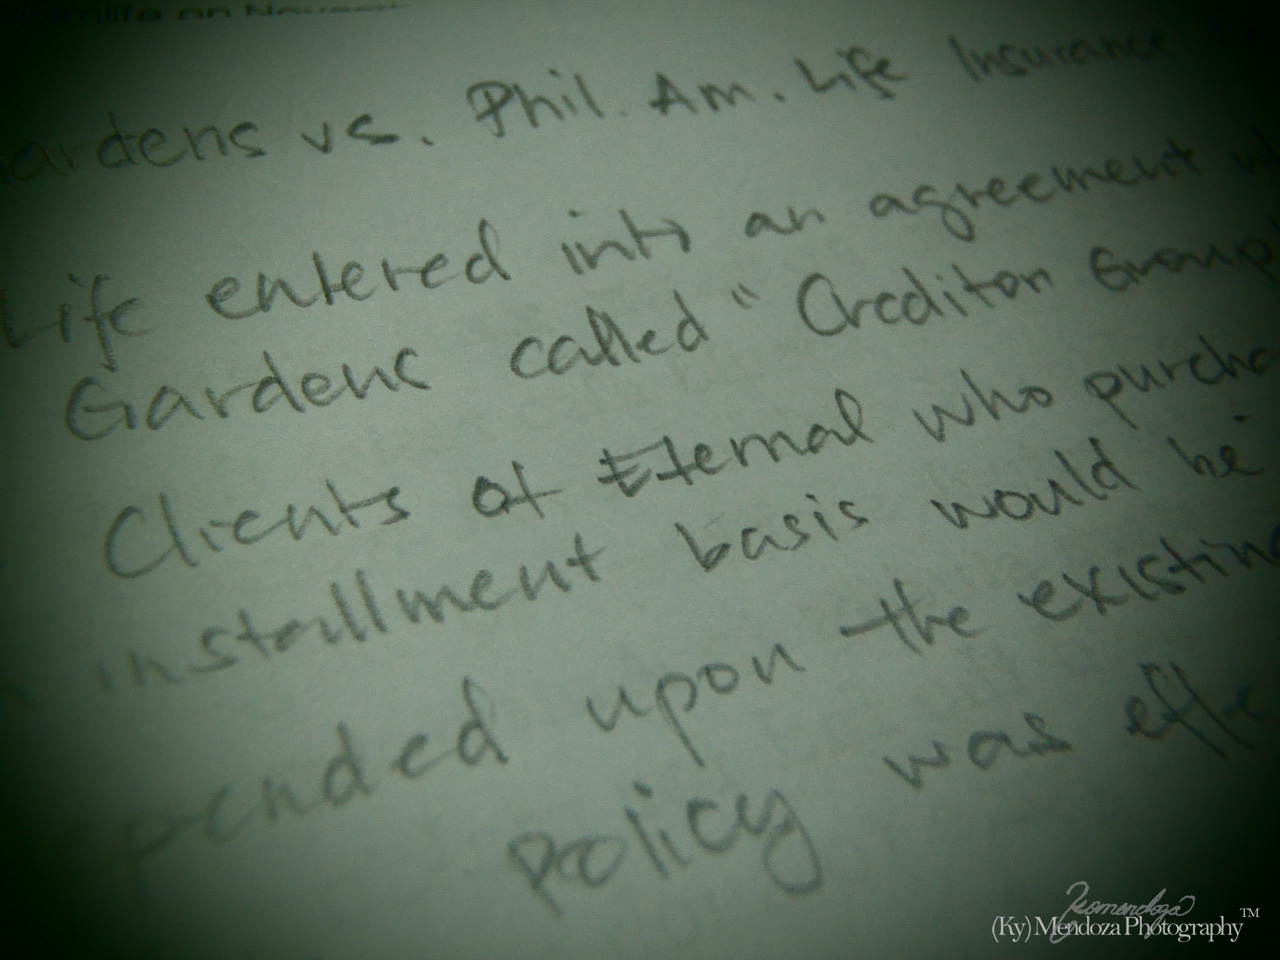 vs. Phil. Am. Life Insurance
Life entered into an agreement
Gardens called "Creditor Group
Clients of Eternal who purcha
installment basis would be
pended upon the existing
policy was effe
Kymendoza
(Ky) Mendoza Photography™